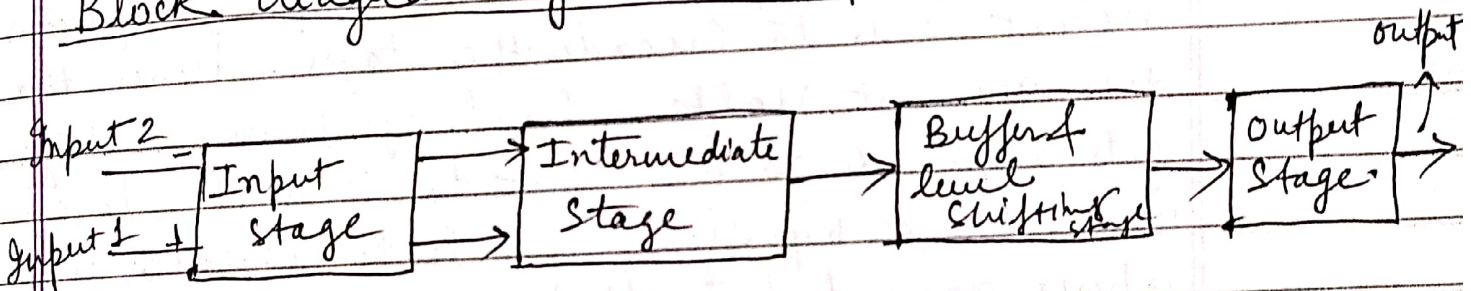 Block
output
Input 2 -
Input
stage
Input 1 +
Intermediate
Stage
Buffer &
level
shifting
stage
Output
Stage.